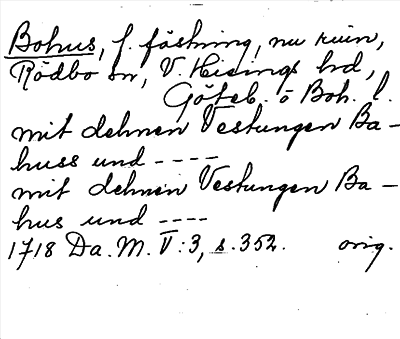 Bohus, f. fästning, nu ruin,
Rödbo sn, V. Hisings hd,
Göteb. o Boh. l.
mit dehnen Vestungen Ba-
huss und ----
mit dehnen Vestungen Ba-
hus und ----
1718 Da. M. V:3, s. 352. orig.